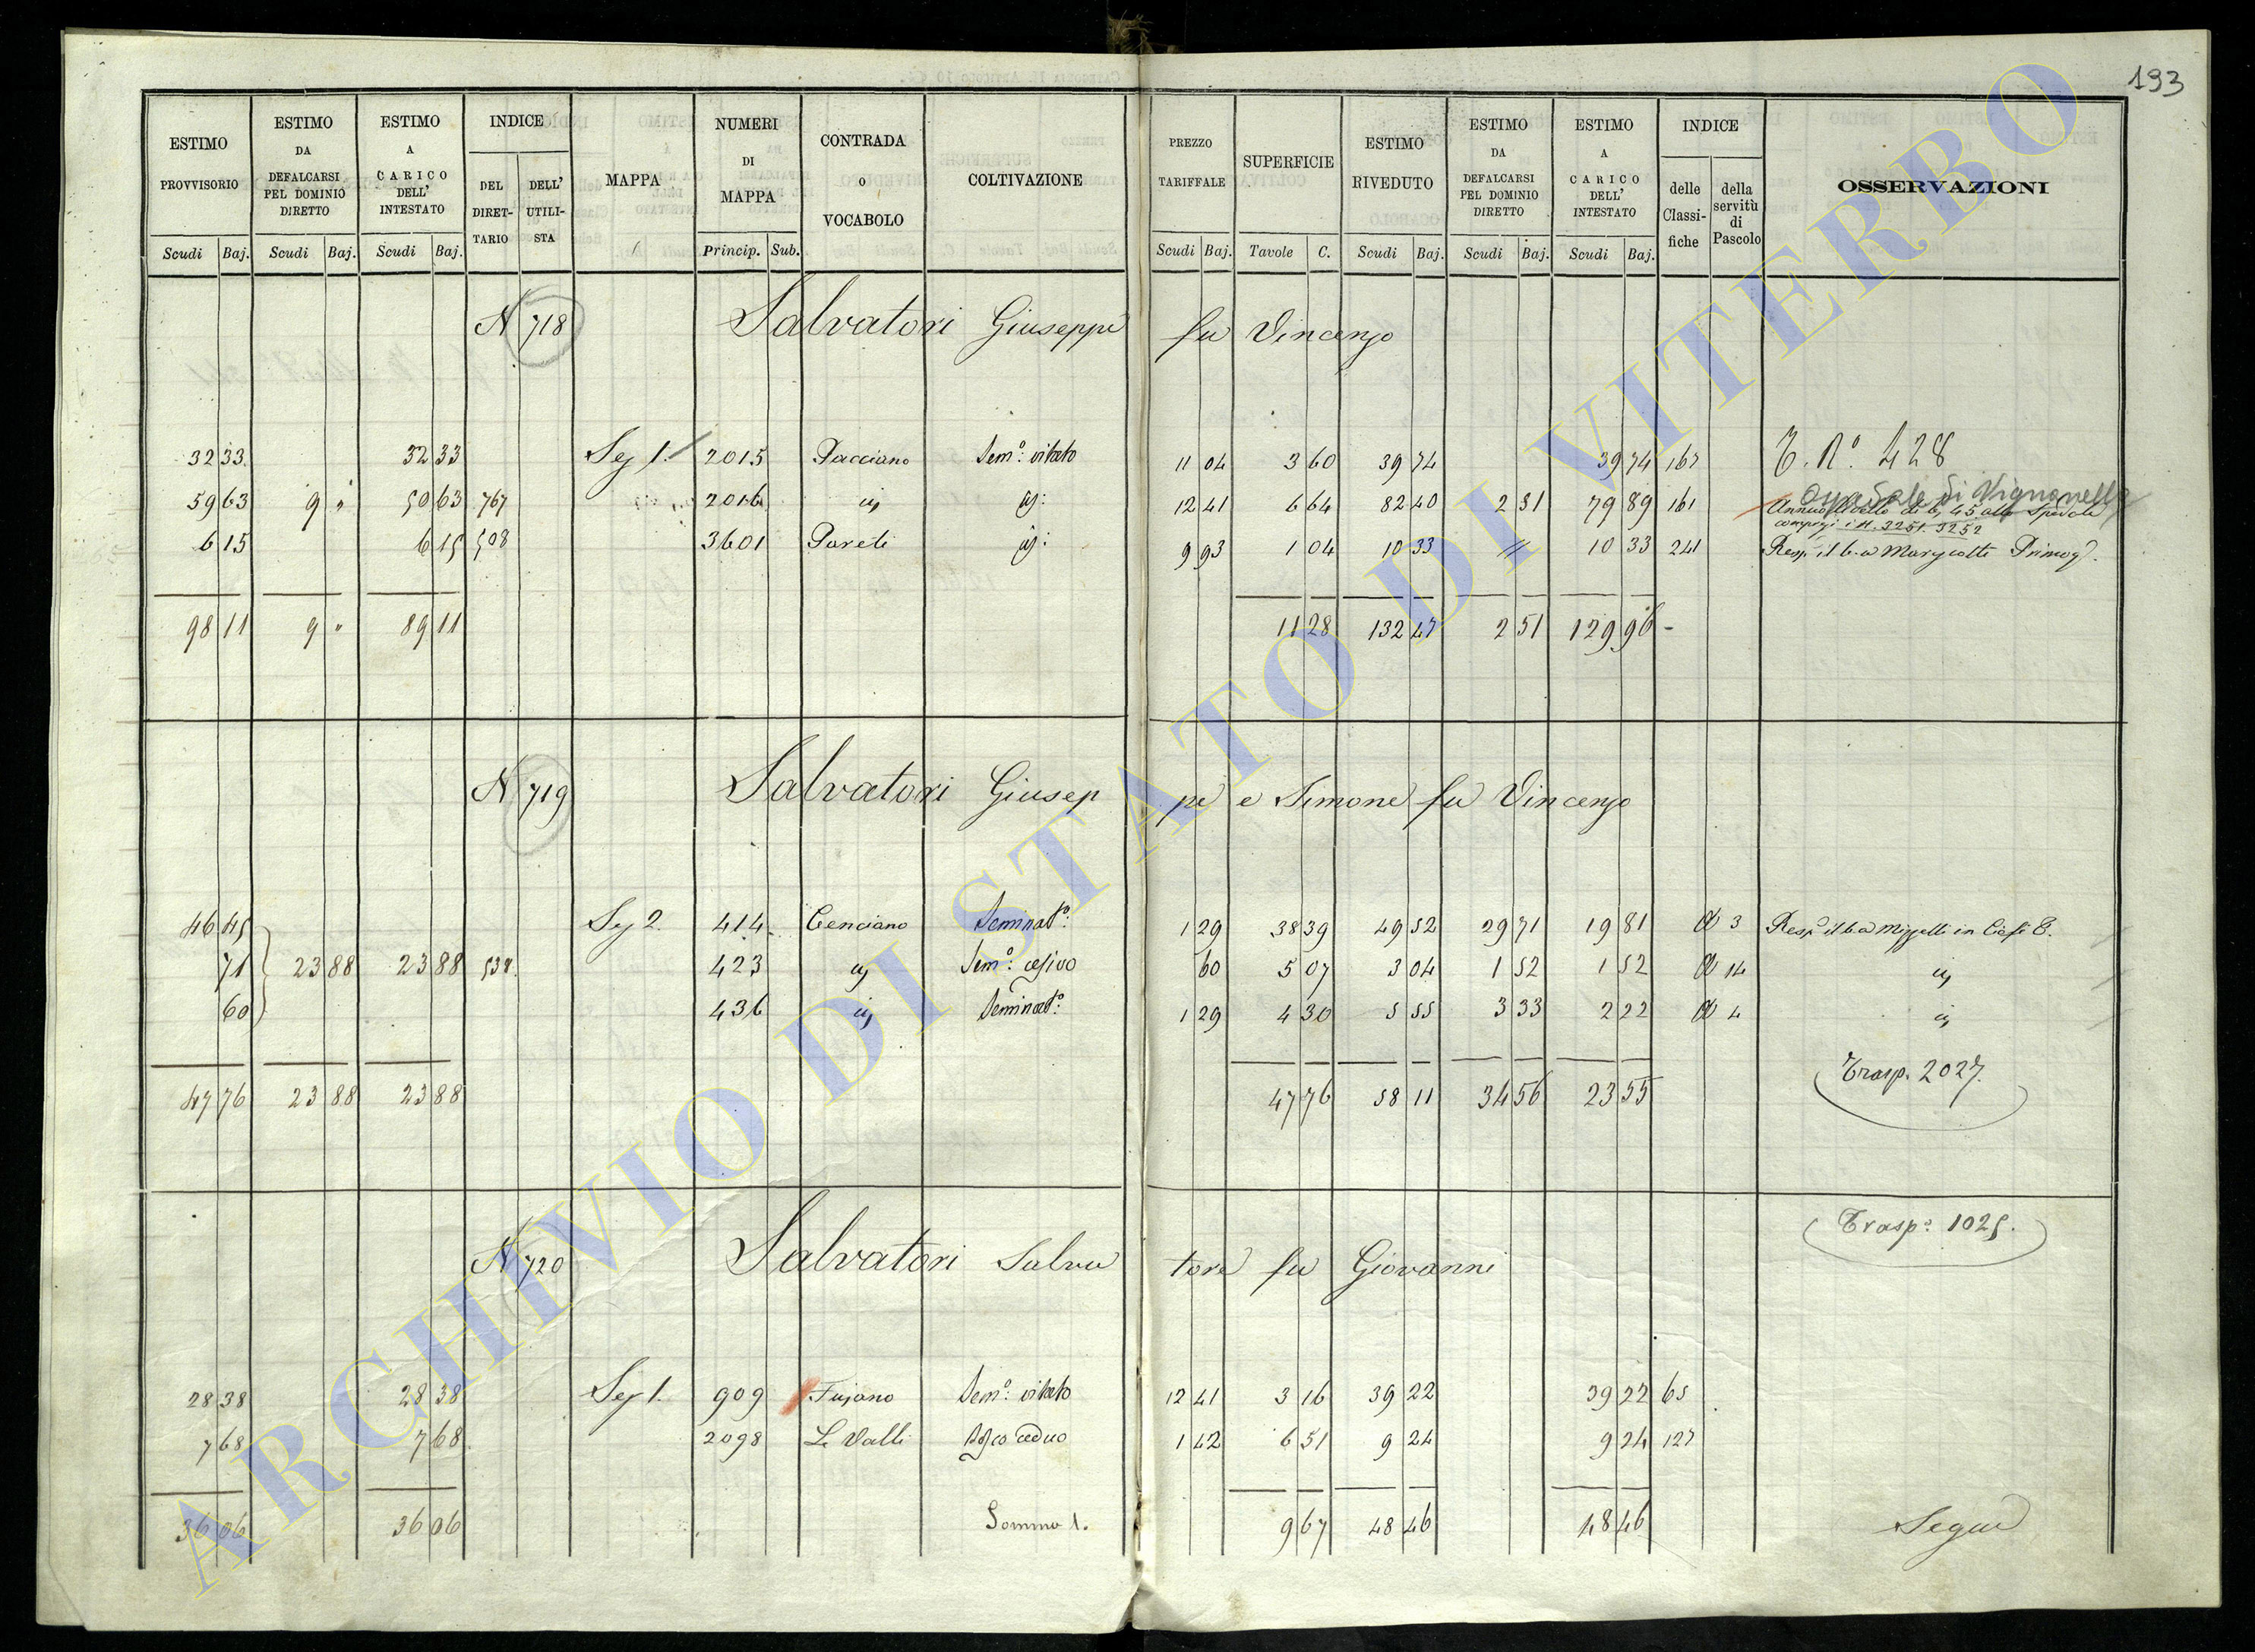 193
ESTIMO PROVVISORIO | ESTIMO DA DEFALCARSI PEL DOMINIO DIRETTO | ESTIMO A CARICO DELL' INTESTATO | INDICE DEL DIRETTARIO | DELL' UTILISTA | MAPPA | NUMERI DI MAPPA | CONTRADA O VOCABOLO | COLTIVAZIONE | PREZZO TARIFFALE | SUPERFICIE | ESTIMO RIVEDUTO | ESTIMO DA DEFALCARSI PEL DOMINIO DIRETTO | ESTIMO A CARICO DELL' INTESTATO | INDICE delle Classifiche | della servitù di Pascolo | OSSERVAZIONI
Scudi Baj. | Scudi Baj. | Scudi Baj. | Princip. Sub. | Scudi Baj. | Tavole C. | Scudi Baj. | Scudi Baj. | Scudi Baj.
N 718 Salvatori Giuseppe fu Vincenzo
T. N.° 428
32 33 | 32 33 | Sez 1. | 2015 | Pacciano | Sem.° vitato | 11 04 | 3 60 | 39 74 | 39 74 | 167
Ospedale di Vignanello
59 63 | 9 " | 50 63 | 767 | 2016 | id | id: | 12 41 | 6 64 | 82 40 | 2 51 | 79 89 | 161 | Annuo 45 allo Spedale
compresi i N. 3251. 3252
6 15 | 6 15 | 508 | 3601 | Pareti | id: | 9 93 | 1 04 | 10 33 | " | 10 33 | 241 | Resp.
98 11 | 9 " | 89 11 | 11 28 | 132 47 | 2 51 | 129 96
N 719 Salvatori Giuseppe e Simone fu Vincenzo
46 45 | Sez 2. | 414 | Cenciano | Seminat.° | 1 29 | 38 39 | 49 52 | 29 71 | 19 81 | 3
71 | 23 88 | 23 88 | 538. | 423 | id | Sem.° cesivo | 60 | 5 07 | 3 04 | 1 52 | 1 52 | 14 | id
60 | 436 | id | Seminat.° | 1 29 | 4 30 | 5 55 | 3 33 | 2 22 | 4 | id
47 76 | 23 88 | 23 88 | 47 76 | 58 11 | 34 56 | 23 55 | Trasp. 2027.
Trasp.° 1025.
N 720 Salvatori Salvatore fu Giovanni
28 38 | 28 38 | Sez 1. | 909 | Fujano | Sem.° vitato | 12 41 | 3 16 | 39 22 | 39 22 | 65
7 68 | 7 68 | 2098 | Le Valli | Bosco ceduo | 1 42 | 6 51 | 9 24 | 9 24 | 127
36 06 | 36 06 | Somma 1. | 9 67 | 48 46 | 48 46 | Segue
ARCHIVIO DI STATO DI VITERBO